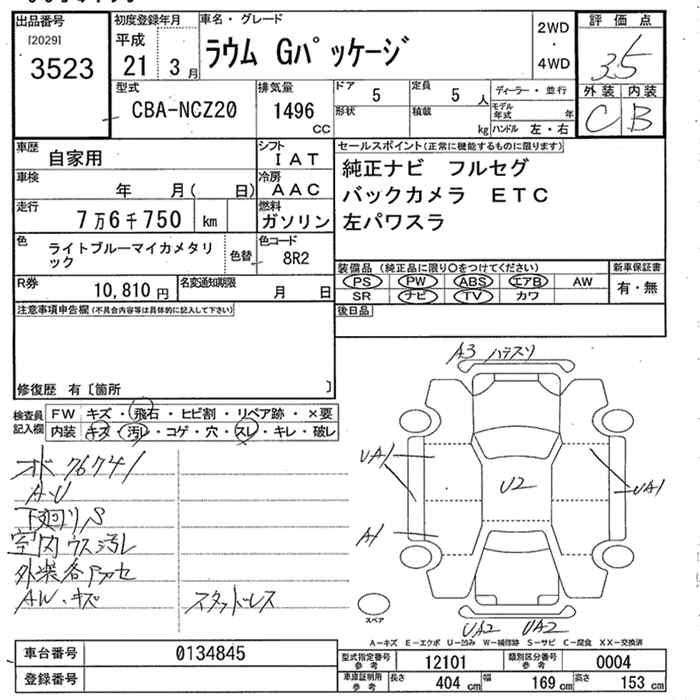 出品番号 初度登録年月 車名・グレード 評価点
[2029] 平成 2WD
3523 21 3月 ラウム Gパッケージ ・ 3.5
4WD
外装 内装
C B
型式 排気量 ドア 5 定員 5 人 ディーラー・並行
CBA-NCZ20 1496 cc 形状 積載 kg モデル年式 年
ハンドル 左・右
車歴 自家用 シフト IAT セールスポイント(正常に機能するものに限ります)
車検 年 月( 日) 冷房 AAC 純正ナビ フルセグ
バックカメラ ETC
走行 7万6千750 km 燃料 ガソリン 左パワスラ
色 ライトブルーマイカメタリック 色替 色コード 8R2
装備品(純正品に限り○をつけてください) 新車保証書
R券 10,810円 名変通知期限 月 日 PS PW ABS エアB AW 有・無
SR ナビ TV カワ
注意事項申告欄(不具合内容等は具体的に記入して下さい) 後日品
修復歴 有〔箇所 〕
A3
検査員 FW キズ・飛石・ヒビ割・リペア跡・×要
記入欄 内装 キズ・汚レ・コゲ・穴・スレ・キレ・破レ
76741
室内 ウス汚レ
AW・キズ
スタッドレス
UA1
U2
UA1
A1
スペア
UA2 UA2
A-キズ E-エクボ U-凹み W-補修跡 S-サビ C-腐食 XX-交換済
車台番号 0134845 型式指定番号 参考 12101 類別区分番号 参考 0004
登録番号 車庫証明用 参考 長さ 404 cm 幅 169 cm 高さ 153 cm